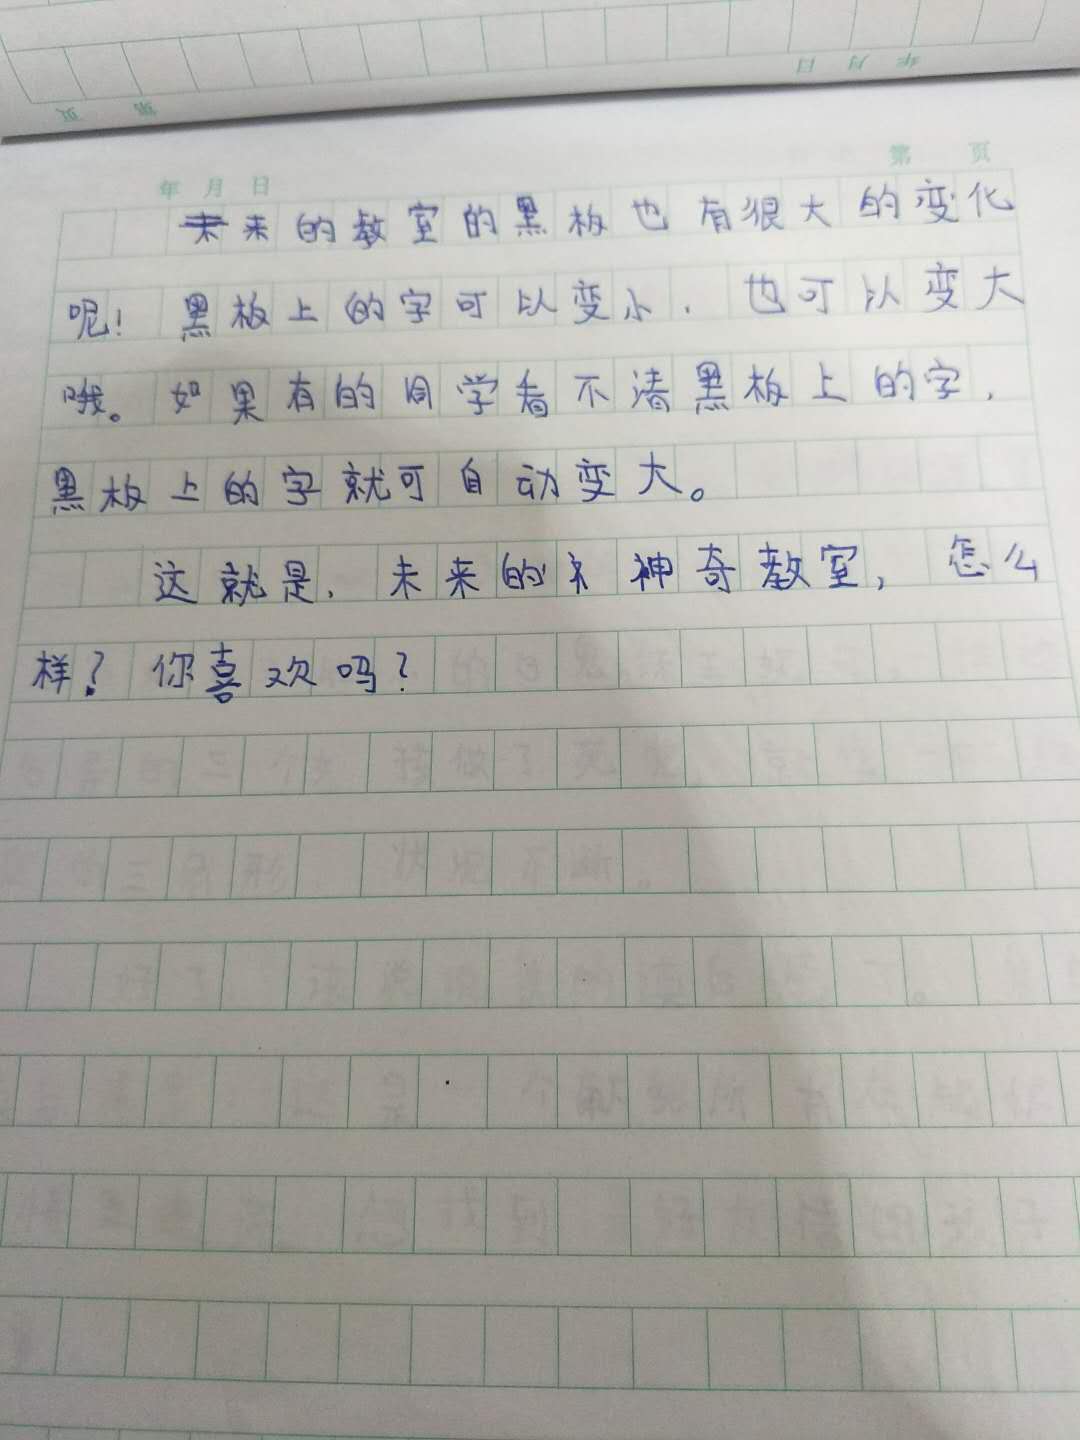 年 月 日
第 页
年 月 日
第 页
未来的教室的黑板也有很大的变化
呢！黑板上的字可以变小，也可以变大
哦。如果有的同学看不清黑板上的字，
黑板上的字就可自动变大。
这就是，未来的礻神奇教室，怎么
样？你喜欢吗？